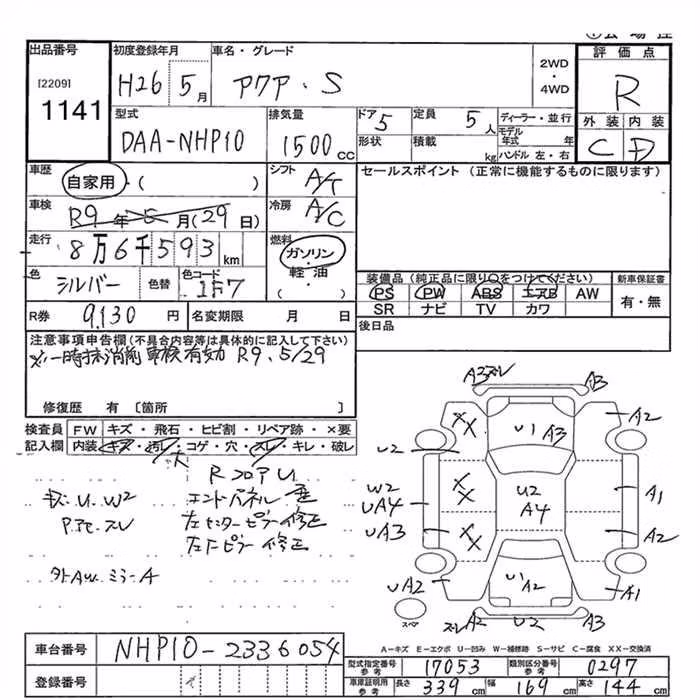 出品番号
[2209]
1141
初度登録年月
H26 5 月
車名・グレード
アクア・S
2WD
・
4WD
評価点
R
外装 内装
C D
型式
DAA-NHP10
排気量
1500 CC
ドア 5
形状
定員 5 人
積載 kg
ディーラー・並行
モデル年式 年
ハンドル 左・右
車歴
自家用・( )
シフト
A/T
車検
R9 年 5 月(29 日)
冷房
A/C
走行
8万6千593 km
燃料
ガソリン
・
軽油
( )
色
シルバー
色替
色コード
1F7
R券 9,130 円
名変期限 月 日
セールスポイント (正常に機能するものに限ります)
装備品(純正品に限り○をつけてください)
PS PW ABS エアB AW
SR ナビ TV カワ
新車保証書
有・無
後日品
注意事項申告欄(不具合内容等は具体的に記入して下さい)
※一時抹消前 車検有効 R9.5/29
修復歴 有 〔箇所 〕
検査員記入欄
FW キズ・飛石・ヒビ割・リペア跡・×要
内装 キズ・汚レ・コゲ・穴・スレ・キレ・破レ
大
RフロアU
キズ.U.W2
エンドパネル
左センターピラー修正
左Fピラー修正
外AW.ミラーA
A3スレ A3
XX U1 A3 A2
U2
W2
UA4 XX U2 A4 A1
UA3 XX A2
UA2 U1 A2 A1
スペア
スレA2 U2 A3
A-キズ E-エクボ U-凹み W-補修跡 S-サビ C-腐食 XX-交換済
車台番号 NHP10-2336054
登録番号
型式指定番号参考 17053
類別区分番号参考 0297
車庫証明用参考 長さ 339 cm 幅 169 cm 高さ 144 cm